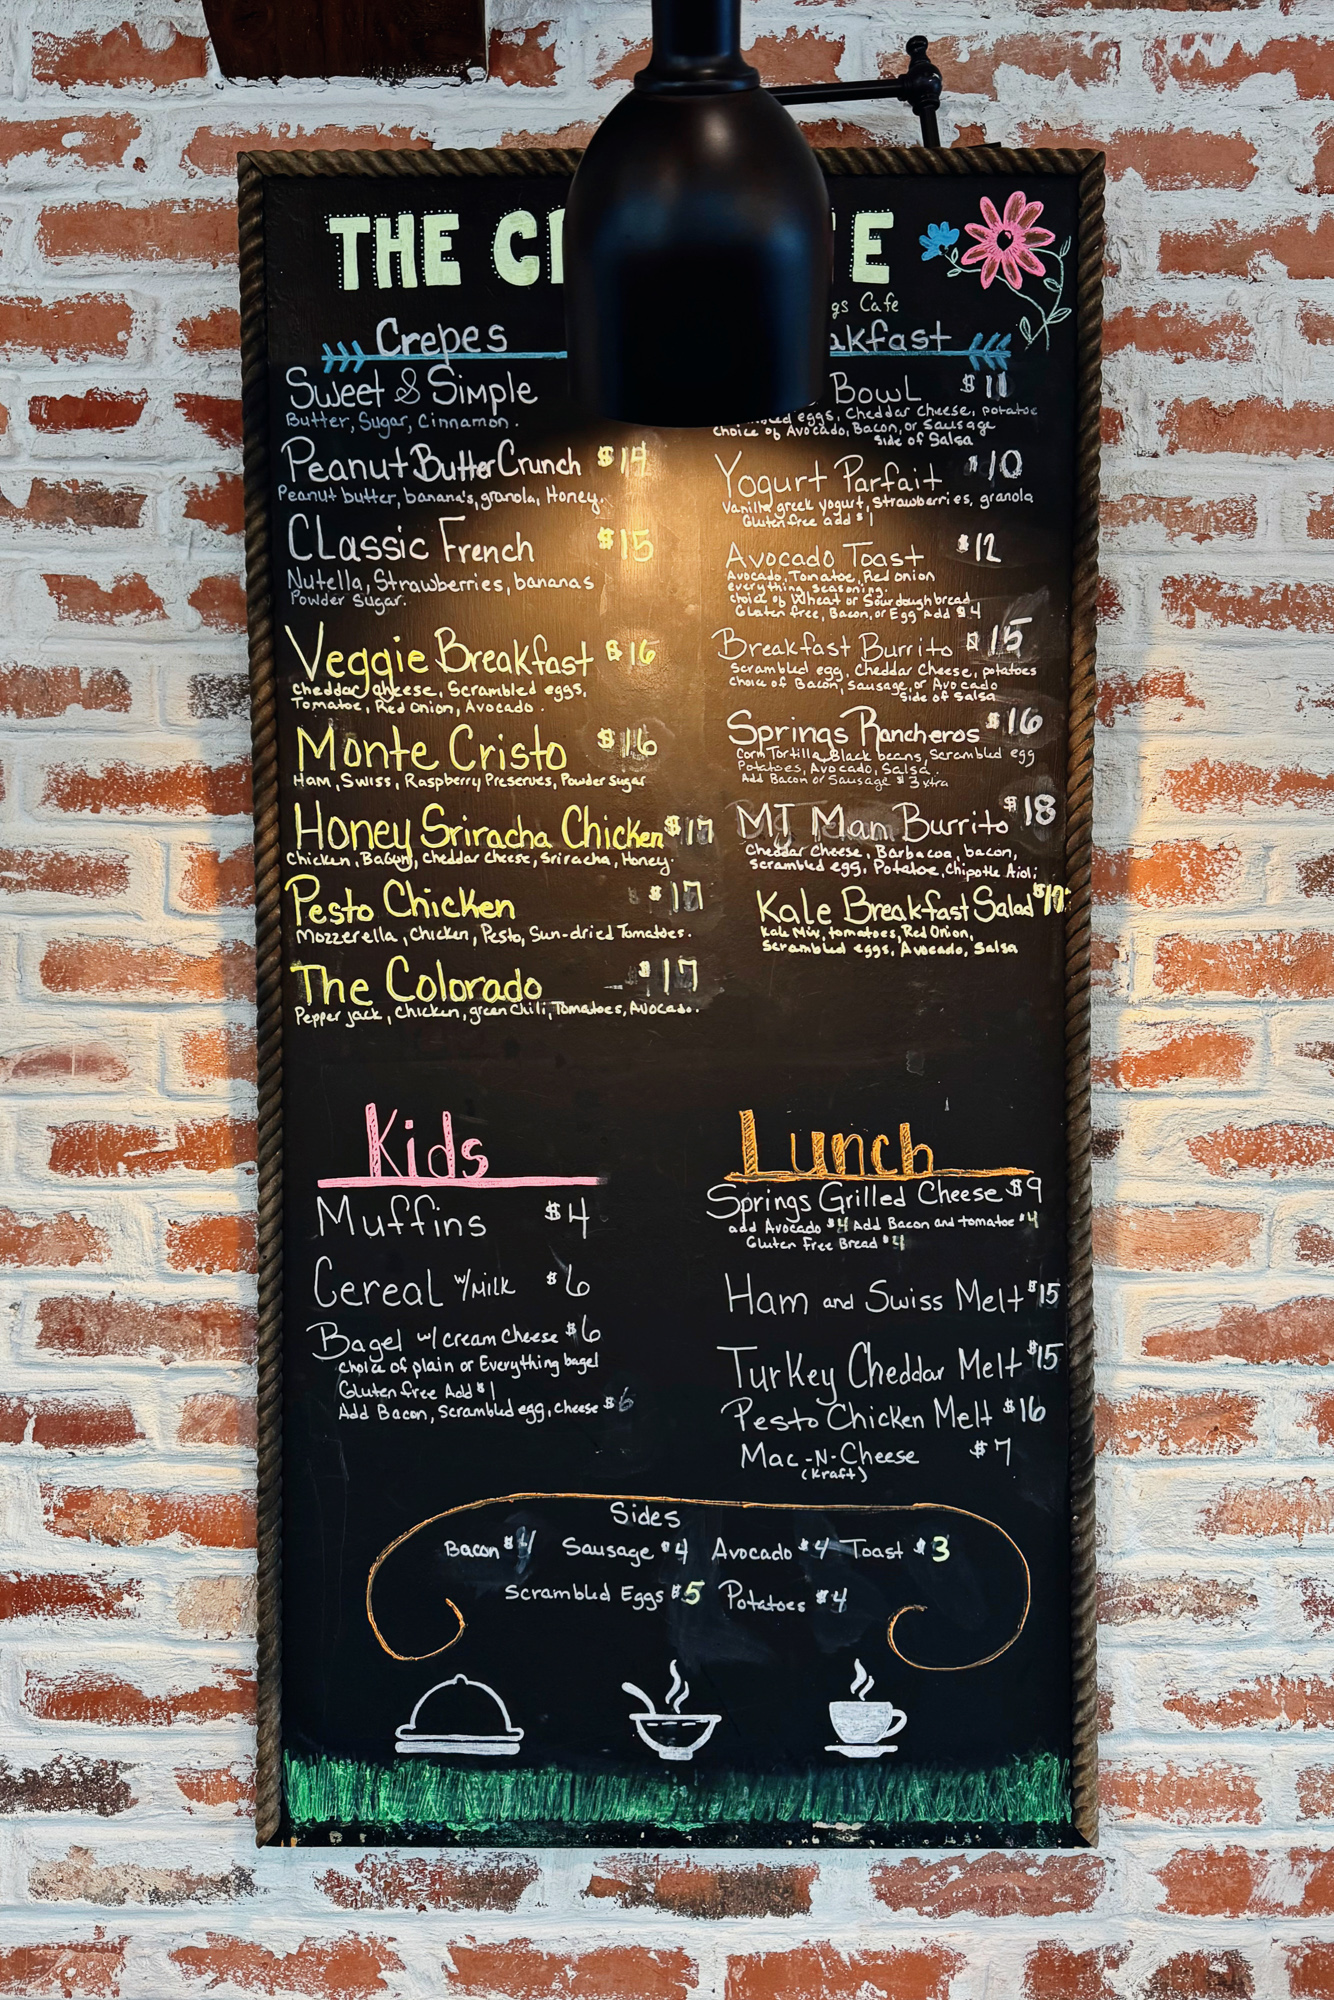 THE
gs Cafe
Crepes
Sweet & Simple
Butter, Sugar, Cinnamon.
Peanut Butter Crunch $14
Peanut butter, banana's, granola, Honey.
Classic French $15
Nutella, Strawberries, bananas
Powder Sugar.
Veggie Breakfast $16
Cheddar cheese, Scrambled eggs,
Tomatoe, Red onion, Avocado.
Monte Cristo $16
Ham, Swiss, Raspberry Preserves, Powder sugar
Honey Sriracha Chicken $17
Chicken, Bacon, cheddar cheese, Sriracha, Honey.
Pesto Chicken $17
Mozzerella, Chicken, Pesto, Sun-dried Tomatoes.
The Colorado $17
Pepper jack, Chicken, green Chili, Tomatoes, Avocado.
akfast
Bowl $11
eggs, Cheddar Cheese, potatoe
choice of Avocado, Bacon, or Sausage
side of Salsa
Yogurt Parfait $10
Vanilla greek yogurt, Strawberries, granola
Gluten free add $1
Avocado Toast $12
Avocado, Tomatoe, Red onion
everything seasoning.
choice of Wheat or Sourdough bread
Gluten free, Bacon, or Egg Add $4
Breakfast Burrito $15
Scrambled egg, Cheddar Cheese, potatoes
Choice of Bacon, Sausage, or Avocado
Side of Salsa
Springs Rancheros $16
Corn Tortilla, Black beans, Scrambled egg
Potatoes, Avocado, Salsa
Add Bacon or Sausage $3 xtra
MT Man Burrito $18
Cheddar Cheese, Barbacoa, bacon,
Scrambled egg, Potatoe, Chipotle Aioli
Kale Breakfast Salad
Kale Mix, tomatoes, Red Onion,
Scrambled eggs, Avocado, Salsa
Kids
Muffins $4
Cereal w/ Milk $6
Bagel w/ cream cheese $6
choice of plain or Everything bagel
Gluten free Add $1
Add Bacon, Scrambled egg, cheese $6
Lunch
Springs Grilled Cheese $9
add Avocado $4 Add Bacon and tomatoe $4
Gluten Free Bread $4
Ham and Swiss Melt $15
Turkey Cheddar Melt $15
Pesto Chicken Melt $16
Mac-N-Cheese $7
(Kraft)
Sides
Bacon $4 Sausage $4 Avocado $4 Toast $3
Scrambled Eggs $5 Potatoes $4